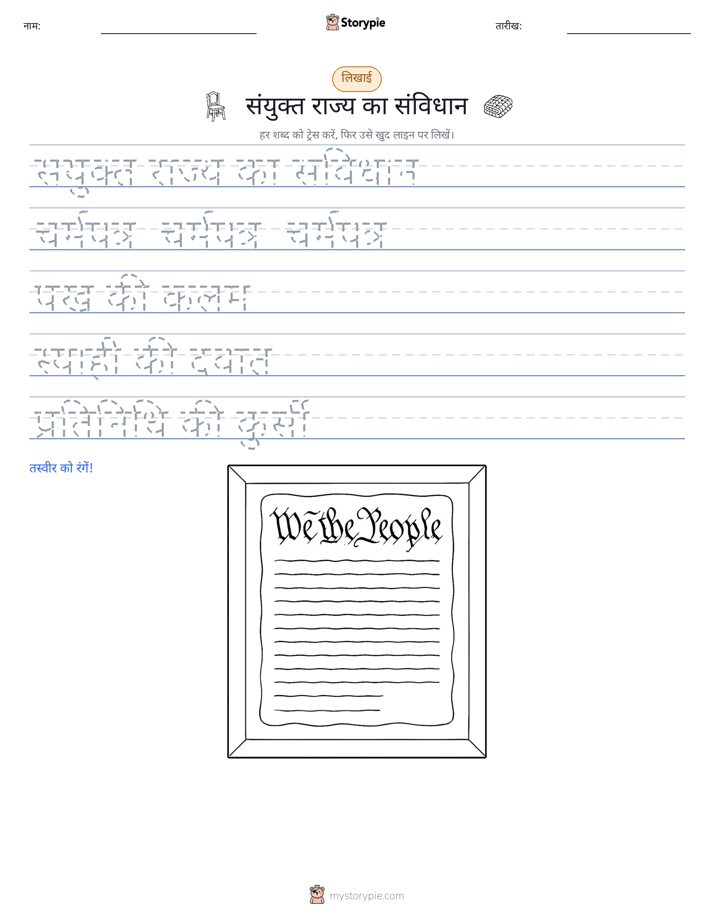 नाम:
Storypie
तारीख:
लिखाई
संयुक्त राज्य का संविधान
हर शब्द को ट्रेस करें, फिर उसे खुद लाइन पर लिखें।
संयुक्त राज्य का संविधान
चर्मपत्र चर्मपत्र चर्मपत्र
पंख की कलम
स्याही की दवात
प्रतिनिधि की कुर्सी
तस्वीर को रंगें!
We the People
mystorypie.com